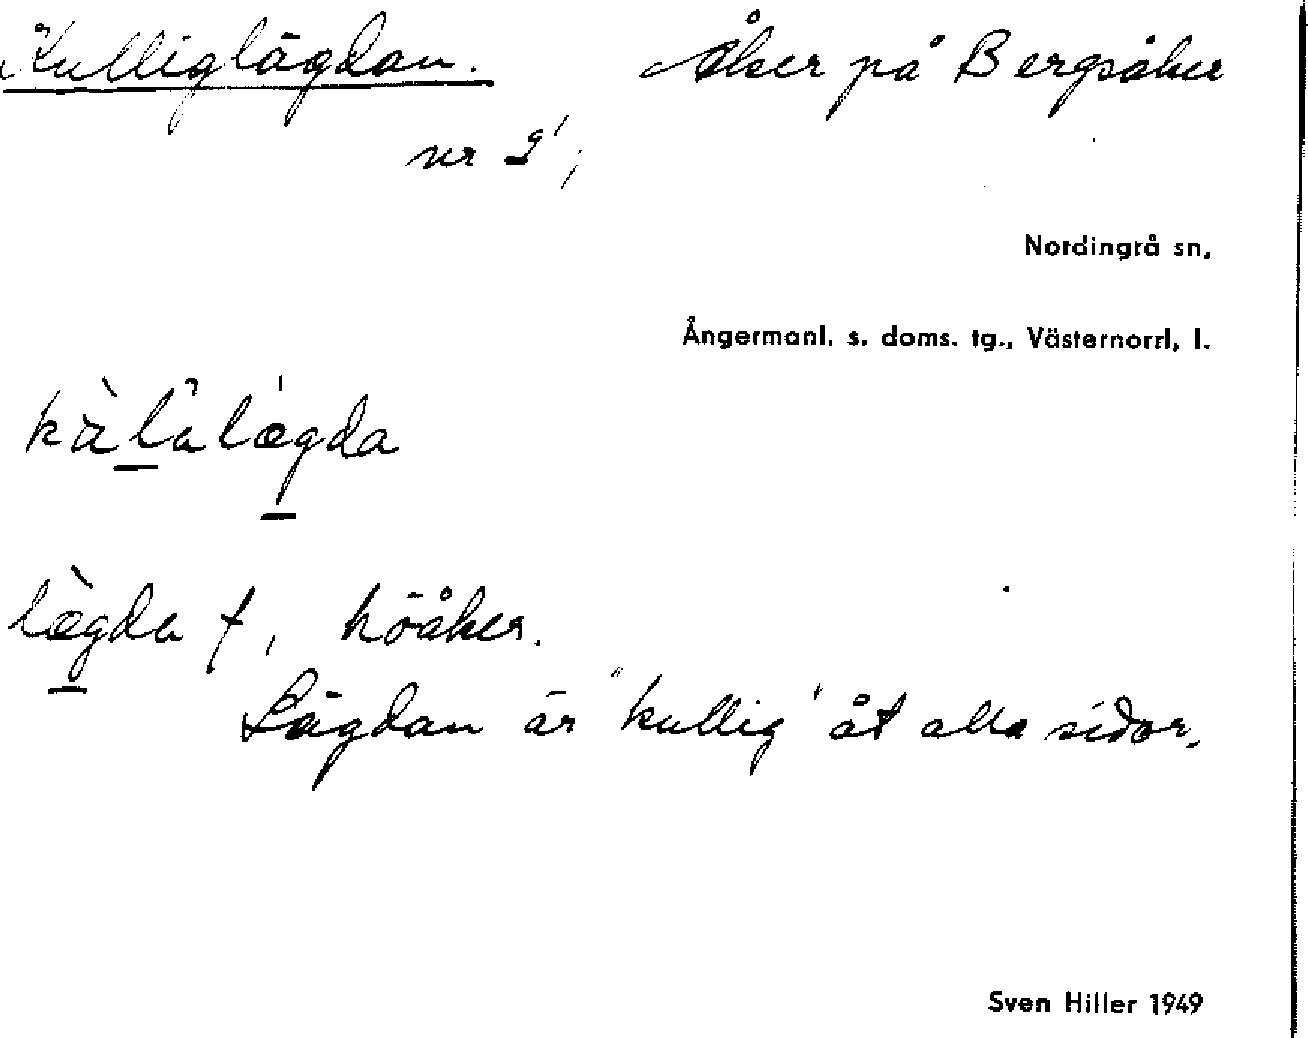 Kulliglägdan. Åker på Bergsåker
nr 2¹;
Nordingrå sn,
Ångermanl. s. doms. tg., Västernorrl. l.
lægda f, höåker.
Lägdan är "kullig" åt alla sidor.
Sven Hiller 1949